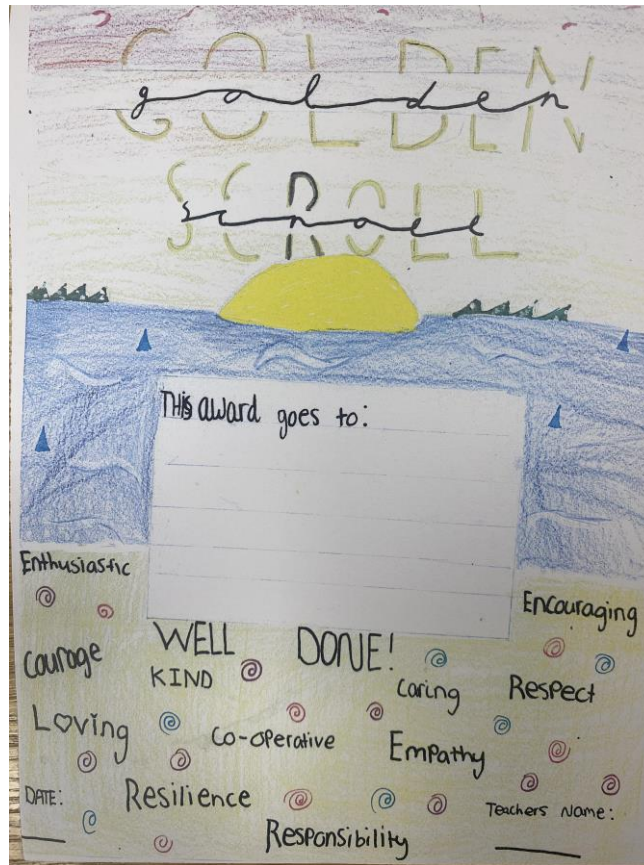 GOLDEN
golden
SCROLL
scroll
THis award goes to:
Enthusiastic
Encouraging
WELL DONE!
Courage
KIND
Caring
Respect
Loving
Co-operative
Empathy
DATE:
Resilience
Teachers Name:
Responsibility